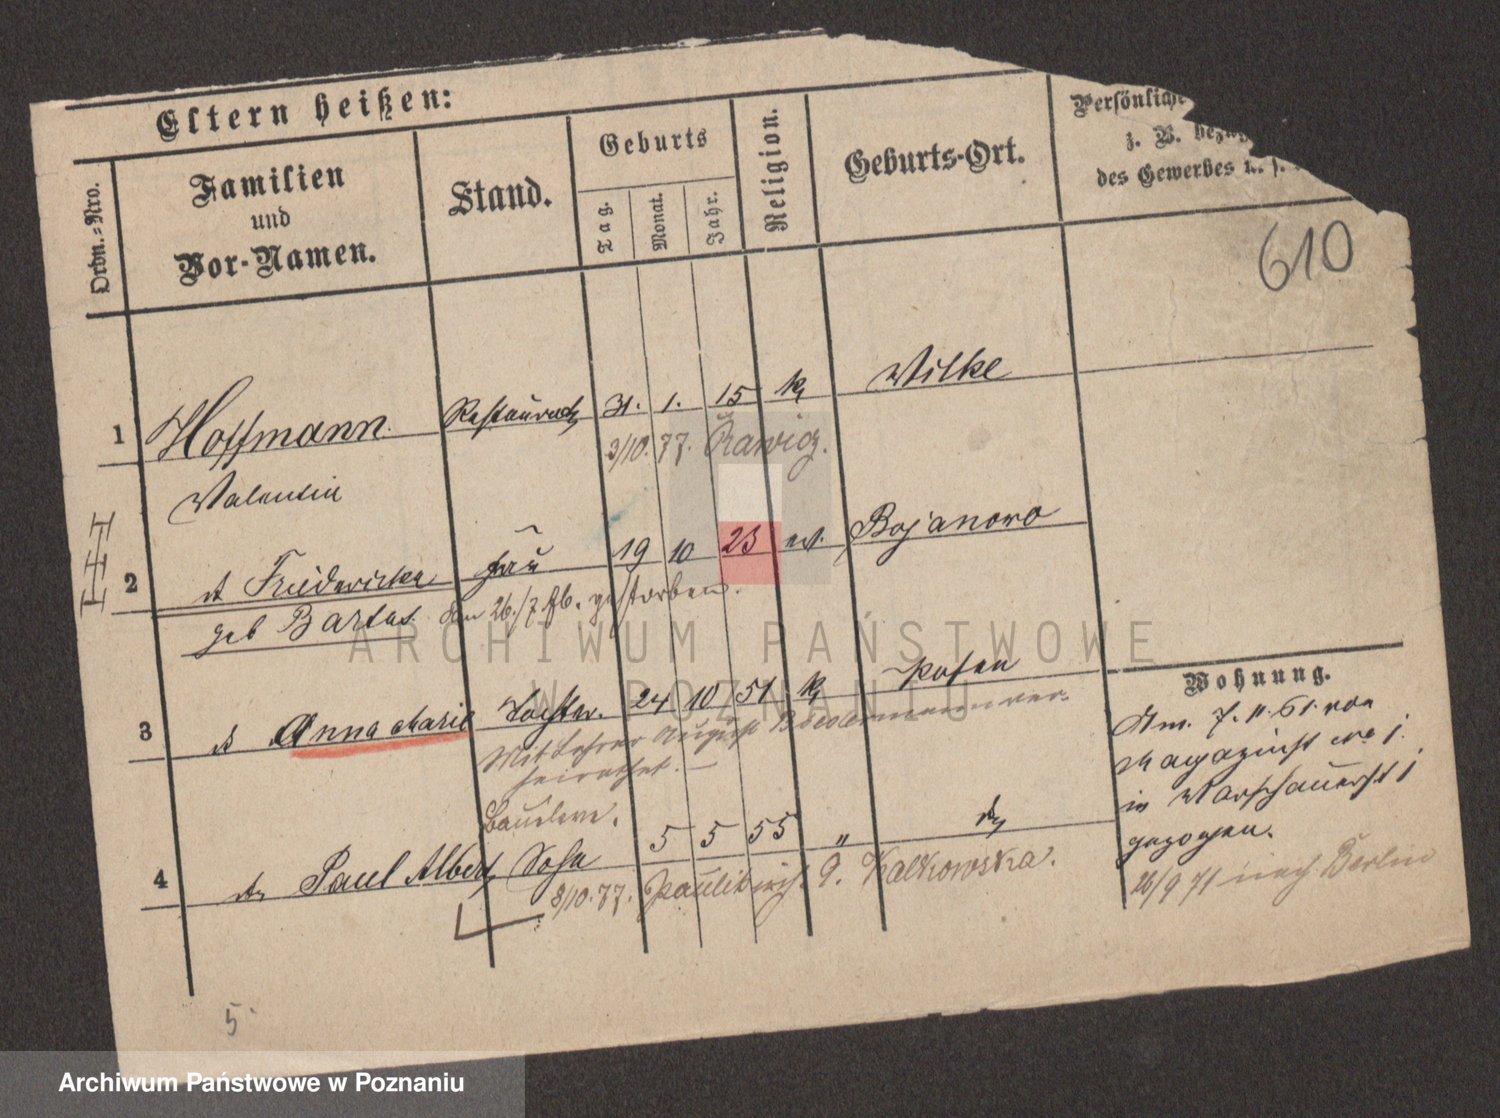 Eltern heißen:
Ordn.-Nro.
Familien
und
Vor-Namen.
Stand.
Geburts
Tag.
Monat.
Jahr.
Religion.
Geburts-Ort.
Persönliche
z. B.
des Gewerbes u. s.
610
1 Hoffmann Restaurat 31. 1. 15 k Wilke
3/10. 77. Rawicz.
Valentin
2 Friedericke Frau 19 10 23 ev. Bojanowo
geb Bartas den 26./7. gestorben.
3 Anna Marie Tochter. 24 10 51 k Posen
Mit Lehrer August ver-
heirathet. —
Wohnung.
Am. 7. 11. 61. von
Magazinst No 1.
in Warschauerst 1
gezogen.
26/9 71 nach Berlin
Baueleve.
4 Paul Albert Sohn 5 5 55 "
8/10. 77. Paulikirchst 9. Kalkowska.
5.
ARCHIWUM PAŃSTWOWE
W POZNANIU
Archiwum Państwowe w Poznaniu